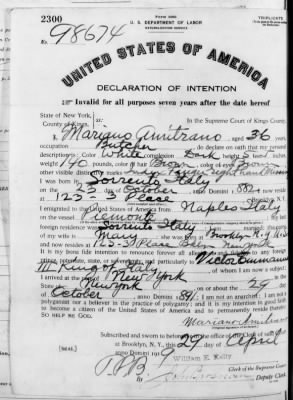 2300
Form 2203
TRIPLICATE
U. S. DEPARTMENT OF LABOR
NATURALIZATION SERVICE
No. 98674
UNITED STATES OF AMERICA
DECLARATION OF INTENTION
Invalid for all purposes seven years after the date hereof
State of New York,
County of Kings, ss:
In the Supreme Court of Kings County.
I, Mariano Amitrano, aged 36 years,
occupation Butcher, do declare on oath that my personal
description is: Color White, complexion Dark, height 5 feet inches,
weight 140 pounds, color of hair Brown, color of eyes Brown
other visible distinctive marks Index Finger right hand
I was born in Sorrento Italy
on the day of October, anno Domini 1 882; I now reside
at 123-3 Place, N.Y.
I emigrated to the United States of America from Naples Italy
on the vessel Piemonte; my last
foreign residence was Sorrento Italy
of my wife is Mary
and now resides at 123-3d Place Bklyn New York
It is my bona fide intention to renounce forever all allegiance and fidelity to any foreign
prince, potentate, state, or sovereignty, and particularly to Victor Emmanuel
III King of Italy, of whom I am now a subject;
I arrived at the port of New York, in the
State of New York, on or about the 29 day
of October, anno Domini 1 891; I am not an anarchist; I am not a
polygamist nor a believer in the practice of polygamy; and it is my intention in good faith
to become a citizen of the United States of America and to permanently reside therein:
SO HELP ME GOD.
Mariano Amitrano
Subscribed and sworn to before me
at Brooklyn, N. Y., this 29 day of April
anno Domini 19
[SEAL]
William E. Kelly
Clerk of the Supreme Court.
Deputy Clerk.